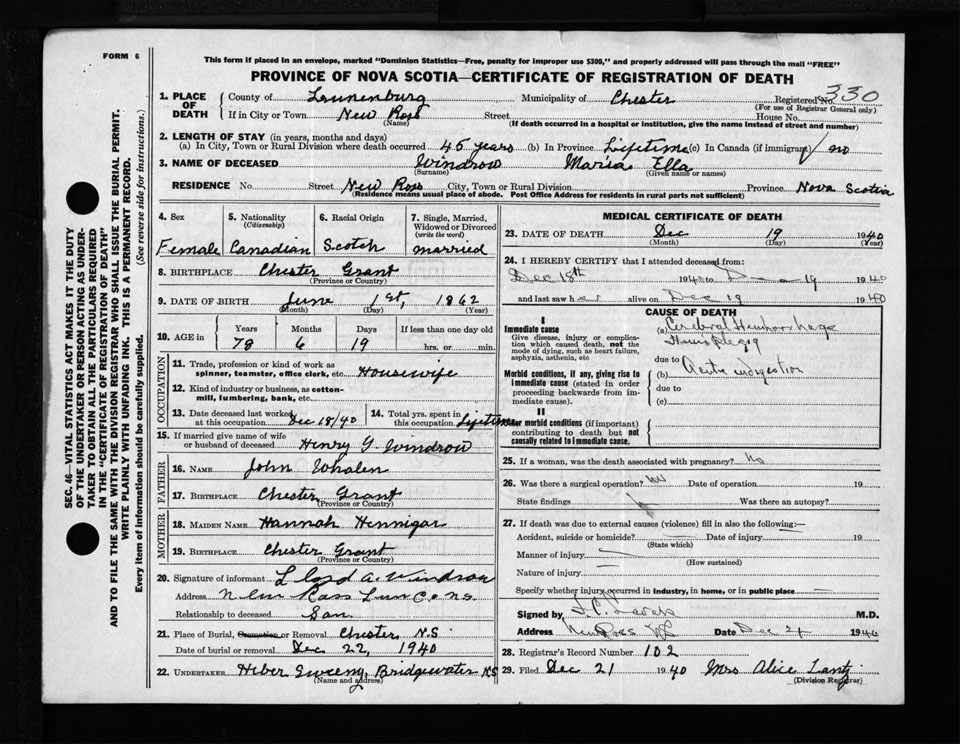 FORM 6
This form if placed in an envelope, marked "Dominion Statistics—Free, penalty for improper use $300," and properly addressed will pass through the mail "FREE"
PROVINCE OF NOVA SCOTIA—CERTIFICATE OF REGISTRATION OF DEATH
SEC. 46—VITAL STATISTICS ACT MAKES IT THE DUTY
OF THE UNDERTAKER OR PERSON ACTING AS UNDER-
TAKER TO OBTAIN ALL THE PARTICULARS REQUIRED
IN THE "CERTIFICATE OF REGISTRATION OF DEATH"
AND TO FILE THE SAME WITH THE DIVISION REGISTRAR WHO SHALL ISSUE THE BURIAL PERMIT.
WRITE PLAINLY WITH UNFADING INK. THIS IS A PERMANENT RECORD.
Every item of information should be carefully supplied. (See reverse side for instructions.)
1. PLACE OF DEATH County of Lunenburg Municipality of Chester Registered No. 330
(For use of Registrar General only)
If in City or Town New Ross Street House No.
(Name) (If death occurred in a hospital or institution, give the name instead of street and number)
2. LENGTH OF STAY (in years, months and days)
(a) In City, Town or Rural Division where death occurred 45 years (b) In Province Lifetime (c) In Canada (if immigrant) no
3. NAME OF DECEASED Windrow Maria Ella
(Surname) (Given name or names)
RESIDENCE No. Street New Ross City, Town or Rural Division Province Nova Scotia
(Residence means usual place of abode. Post Office Address for residents in rural parts not sufficient)
4. Sex 5. Nationality (Citizenship) 6. Racial Origin 7. Single, Married, Widowed or Divorced (write the word)
Female Canadian Scotch married
8. BIRTHPLACE Chester Grant
(Province or Country)
9. DATE OF BIRTH June 1st, 1862
(Month) (Day) (Year)
10. AGE in Years Months Days If less than one day old
78 6 19 hrs. or min.
OCCUPATION
11. Trade, profession or kind of work as
spinner, teamster, office clerk, etc. Housewife
12. Kind of industry or business, as cotton-
mill, lumbering, bank, etc.
13. Date deceased last worked at this occupation Dec 18/40 14. Total yrs. spent in this occupation Lifetime
15. If married give name of wife
or husband of deceased Henry G. Windrow
FATHER
16. NAME John Whalen
17. BIRTHPLACE Chester Grant
(Province or Country)
MOTHER
18. MAIDEN NAME Hannah Hennigar
19. BIRTHPLACE Chester Grant
(Province or Country)
20. Signature of informant Lloyd A. Windrow
Address New Ross Lun Co. N.S.
Relationship to deceased Son.
21. Place of Burial, Cremation or Removal Chester, N.S
Date of burial or removal Dec 22, 1940
22. UNDERTAKER Heber Sweeny, Bridgewater N.S
(Name and agency)
MEDICAL CERTIFICATE OF DEATH
23. DATE OF DEATH Dec 19 1940
(Month) (Day) (Year)
24. I HEREBY CERTIFY that I attended deceased from:
Dec 18th 1940 to Dec 19 1940
and last saw her alive on Dec 19 1940
CAUSE OF DEATH
I
Immediate cause
Give disease, injury or complica-
tion which caused death, not the
mode of dying, such as heart failure,
asphyxia, asthenia, etc
(a) Cerebral Hemhorrhage
Hemiplegia
due to
Morbid conditions, if any, giving rise to
immediate cause (stated in order
proceeding backwards from im-
mediate cause).
(b) Acute indigestion
due to
(c)
II
Other morbid conditions (if important)
contributing to death but not
causally related to immediate cause.
25. If a woman, was the death associated with pregnancy? No
26. Was there a surgical operation? No Date of operation 19
State findings Was there an autopsy?
27. If death was due to external causes (violence) fill in also the following:—
Accident, suicide or homicide? Date of injury 19
(State which)
Manner of injury
(How sustained)
Nature of injury
Specify whether injury occurred in industry, in home, or in public place
Signed by M.D.
Address New Ross NS Date Dec 21 1940
28. Registrar's Record Number 102
29. Filed Dec 21 1940 Mrs Alice Lantz
(Division Registrar)